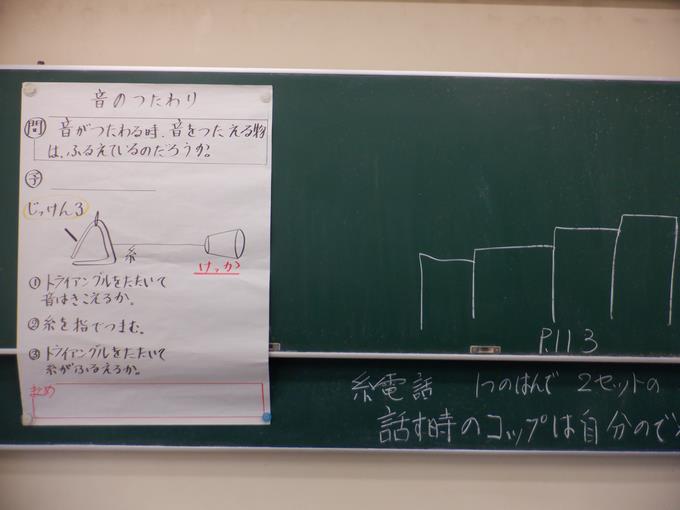 音のつたわり
問 音がつたわる時、音をつたえる物
は、ふるえているのだろうか?
予
じっけん3
糸
けっか
①トライアングルをたたいて
音はきこえるか。
②糸を指でつまむ。
③トライアングルをたたいて
糸がふるえるか。
まとめ
P.113
糸電話 1つのはんで 2セットの
話す時のコップは自分ので